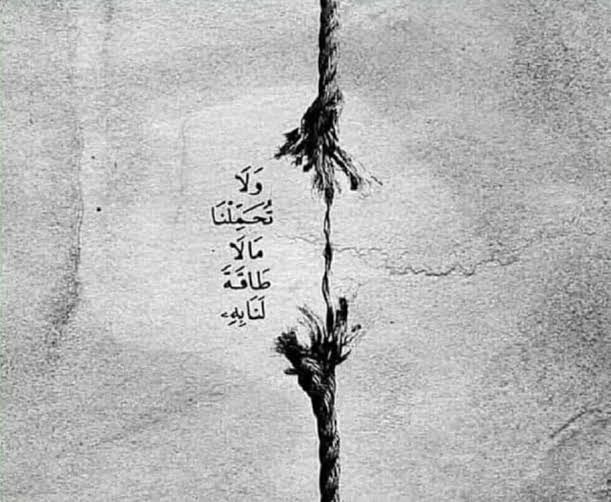 وَلَا
تُحَمِّلْنَا
مَا لَا
طَاقَةَ
لَنَا بِهِۦ